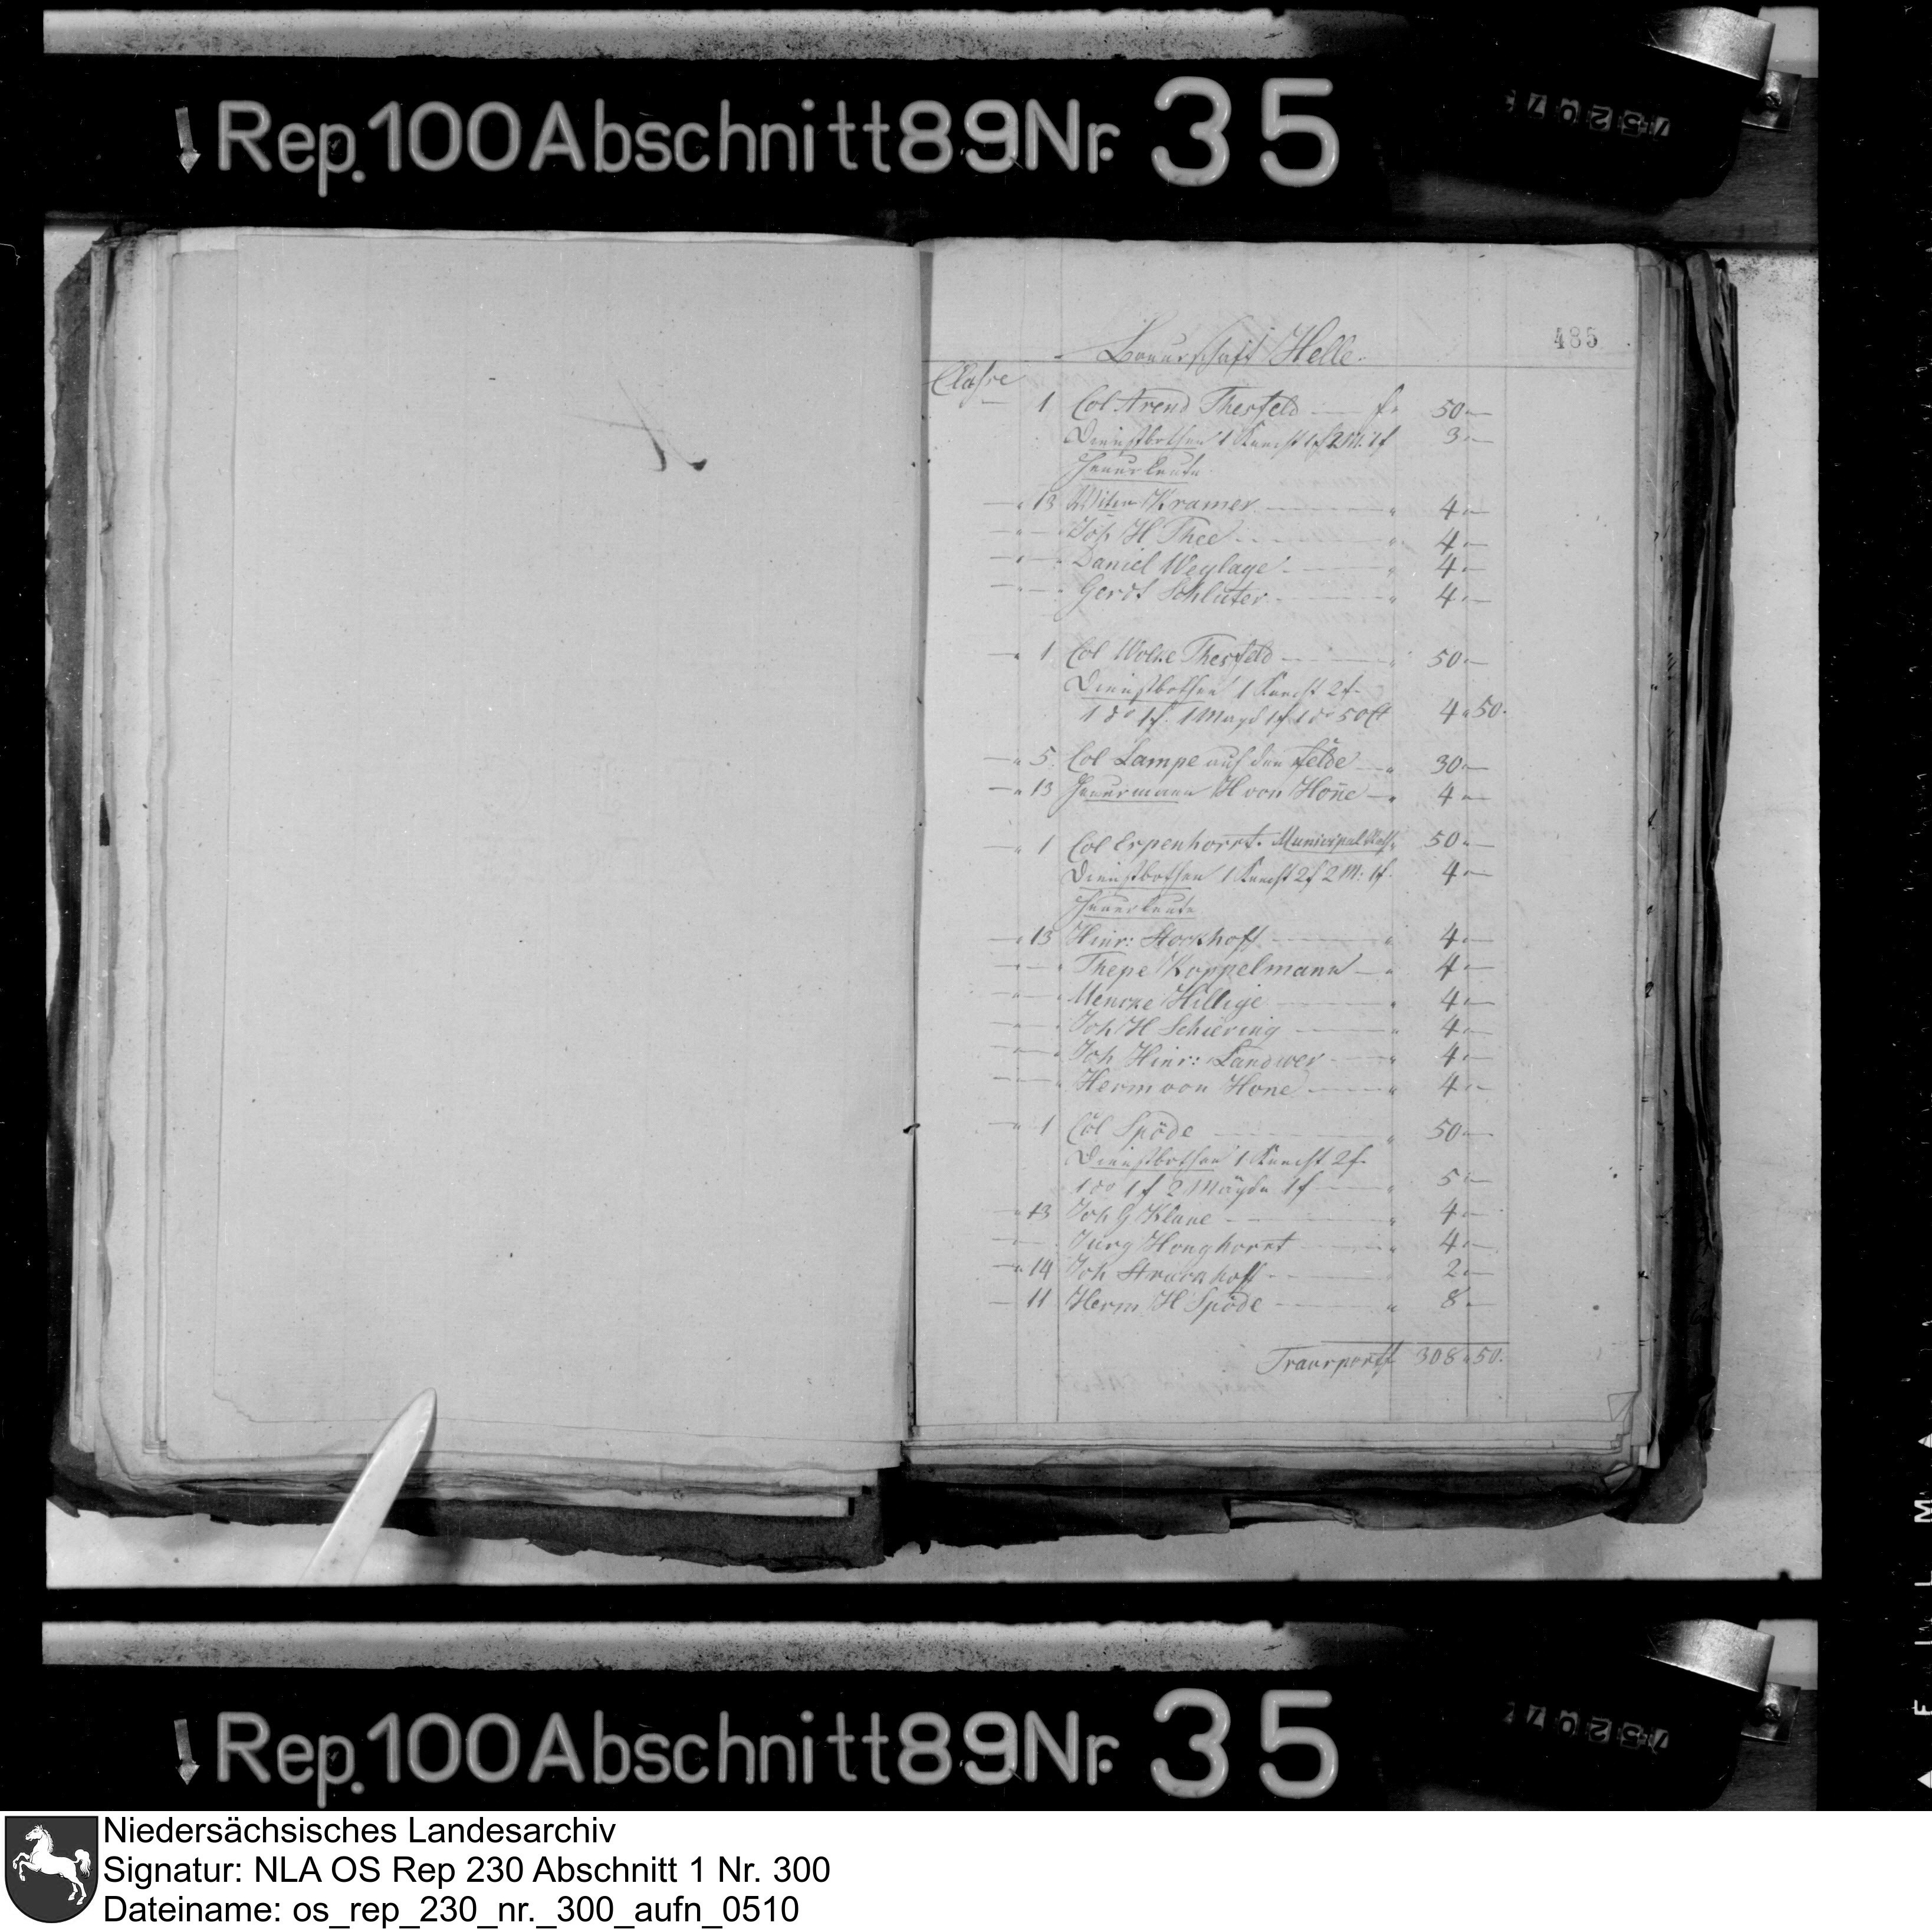 Rep. 100 Abschnitt 89 Nr. 35
485
Bauerschaft Helle.
Classe
1 Col Arend Thesfeld f „ 50 „ —
Dienstbothen 1 Knecht 1f 2 M: 1f 3 „ —
Heuerleute
— „ 13 Witwe Kramer — „ 4 „ —
— „ — „ Joh H Thee — „ 4 „ —
— „ — „ Daniel Weglage — „ 4 „ —
— „ — „ Gerdt Schluter — „ 4 „ —
— „ 1 Col Wolke Thesfeld — „ 50 „ —
Dienstbothen 1 Knecht 2f.
1 do 1f. 1 Magd 1f 1 do 50 Ct 4 „ 50.
— „ 5. Col Lampe auf dem Felde — „ 30 „ —
— „ 13 Heuermann H von Hone — „ 4 „ —
— „ 1 Col Erpenhorst. Municipal Rath „ 50 „ —
Dienstbothen 1 Knecht 2f 2 M: 1f. 4 „ —
Heuerleute
— „ 13 Hinr: Stockhoff — „ 4 „ —
— „ — „ Thepe Koppelmann — „ 4 „ —
— „ — „ Mencke Hillige — „ 4 „ —
— „ — „ Joh H Schiering — „ 4 „ —
— „ — „ Joh Hinr: Landwer — „ 4 „ —
— „ — „ Herm von Hone — „ 4 „ —
— „ 1 Col Spöde — „ 50 „ —
Dienstbothen 1 Knecht 2f.
1 do 1f 2 Mägde 1f — „ 5 „ —
— „ 13 Joh G Klune — „ 4 „ —
— „ — „ Jurg Honghorst — „ 4 „ —
— „ 14 Joh Struckhoff — 2 „ —
— „ 11 Herm H Spöde — „ 8 „ —
Transport f 308 „ 50.
Rep. 100 Abschnitt 89 Nr. 35
FILM
Niedersächsisches Landesarchiv
Signatur: NLA OS Rep 230 Abschnitt 1 Nr. 300
Dateiname: os_rep_230_nr._300_aufn_0510